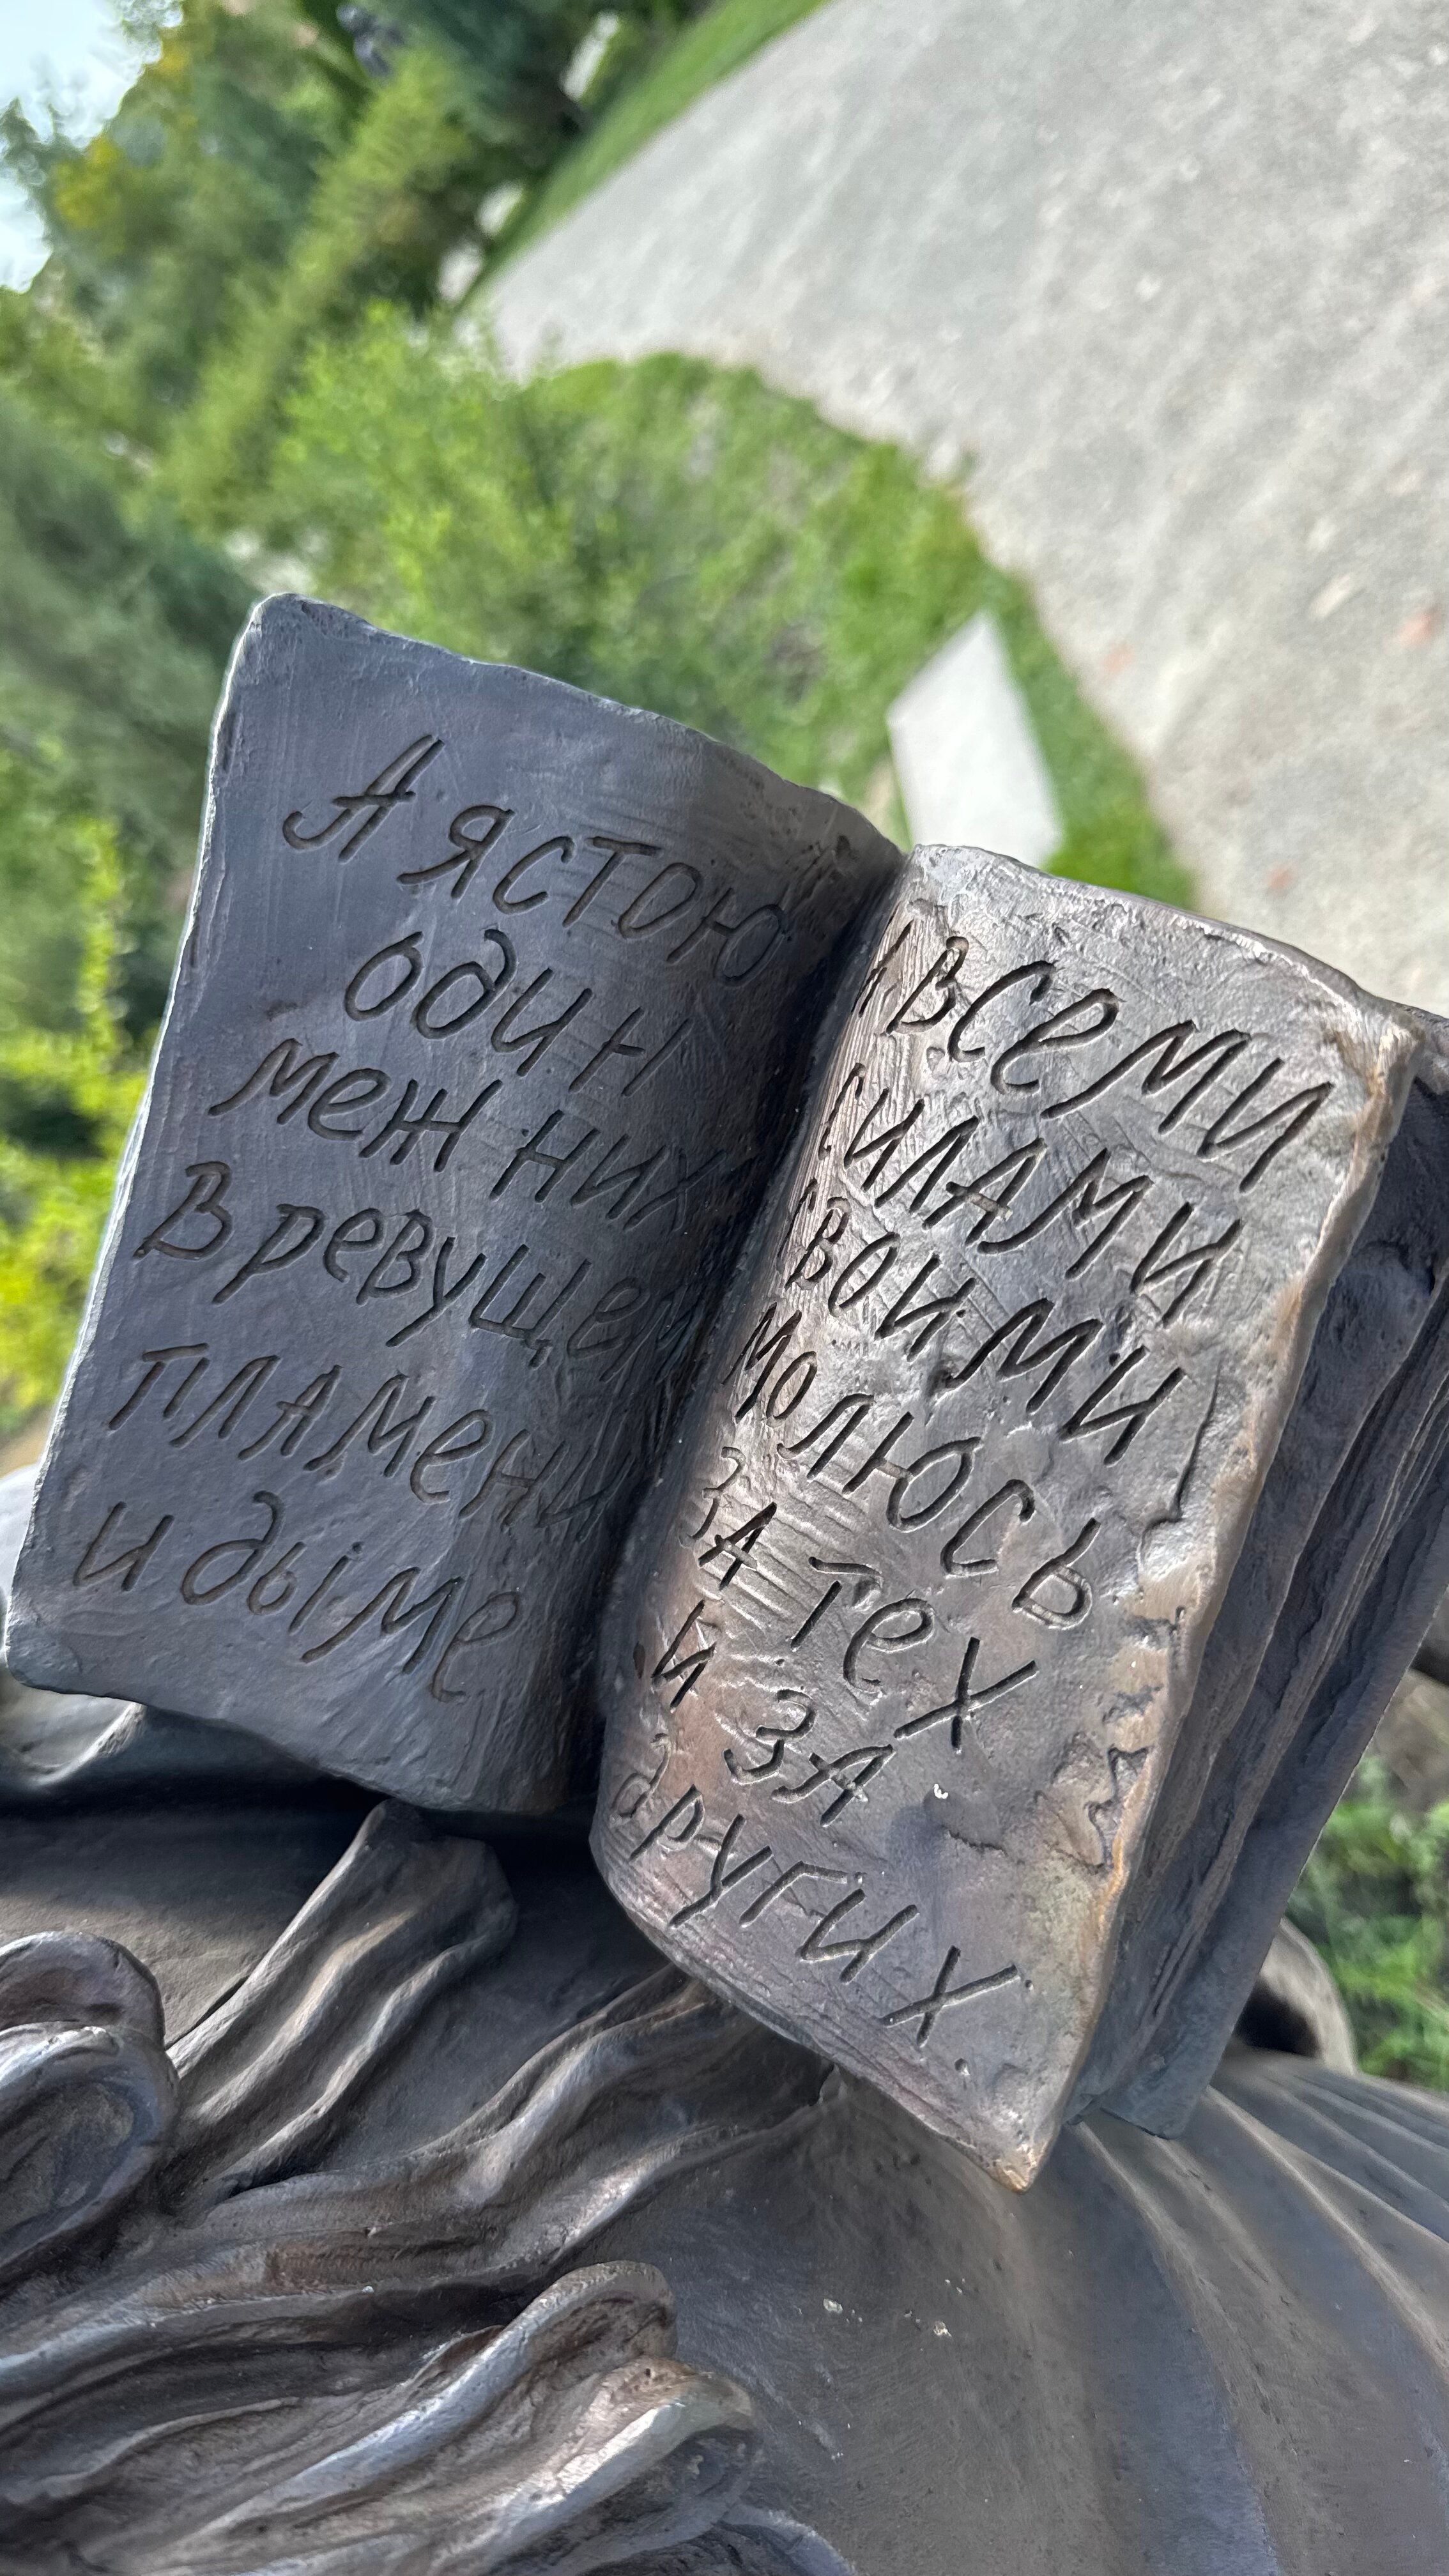 А я стою
один
меж них
В ревущем
пламени
и дыме
И всеми
силами
своими
молюсь
за тех
и за
других.